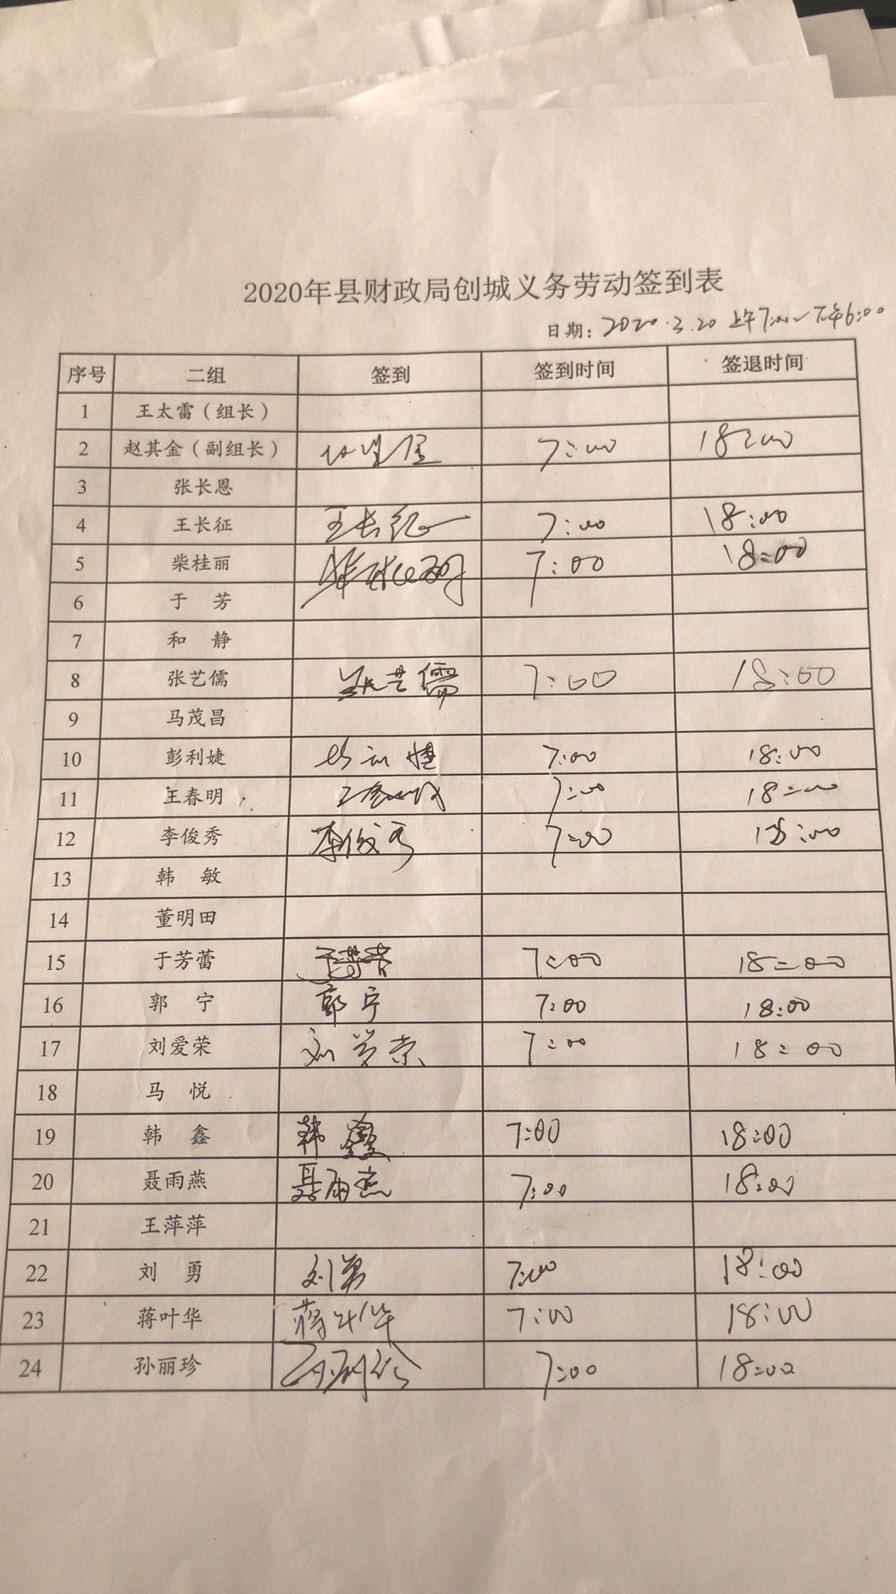 2020年县财政局创城义务劳动签到表
日期: 2020.3.20 上午7:00~下午6:00
序号 二组 签到 签到时间 签退时间
1 王太雷（组长）
2 赵其金（副组长） 7:00 18:00
3 张长恩
4 王长征 王长征 7:00 18:00
5 柴桂丽 柴桂丽 7:00 18:00
6 于 芳
7 和 静
8 张艺儒 张艺儒 7:00 18:00
9 马茂昌
10 彭利婕 彭利婕 7:00 18:00
11 王春明 王春明 7:00 18:00
12 李俊秀 李俊秀 7:00 18:00
13 韩 敏
14 董明田
15 于芳蕾 于芳蕾 7:00 18:00
16 郭 宁 郭宁 7:00 18:00
17 刘爱荣 刘爱荣 7:00 18:00
18 马 悦
19 韩 鑫 韩鑫 7:00 18:00
20 聂雨燕 聂雨燕 7:00 18:00
21 王萍萍
22 刘 勇 刘勇 7:00 18:00
23 蒋叶华 蒋叶华 7:00 18:00
24 孙丽珍 孙丽珍 7:00 18:00